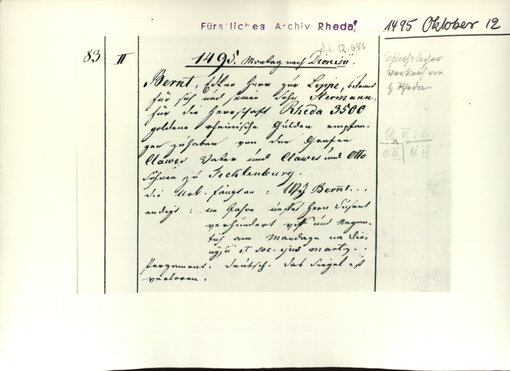 Fürstliches Archiv Rheda
1495 Oktober 12
83 II
1495. Montag nach Dionisii.
d.i. 12. Okt.
Bernt, Edler Herr zur Lippe, bekennt
für sich und seinen Sohn Hermann,
für die Herrschaft Rheda 3500
goldene rheinische Gulden empfan-
gen zu haben von den Grafen
Clawes Vater und Clawes und Otto
Söhnen zu Tecklenburg.
Die Urk. fängt an: Wij Bernt...
endigt: im Jahre unses Herrn Dusent
verhundert viff und negen-
tich am Mandage na Dio-
nysii et soc. ejus mart...
Pergament. Deutsch. Das Siegel ist
verloren.
Rheda